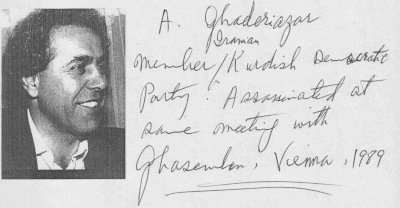 A. Ghaderiazar
Iranian
Member/Kurdish Democratic
Party. Assassinated at
same meeting with
Ghasemlou, Vienna, 1989